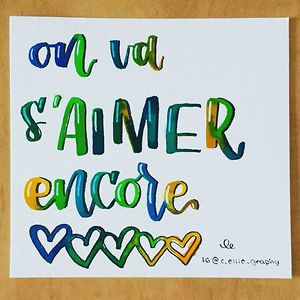 on va
s'AIMER
encore
le
IG @c_ellie_graphy